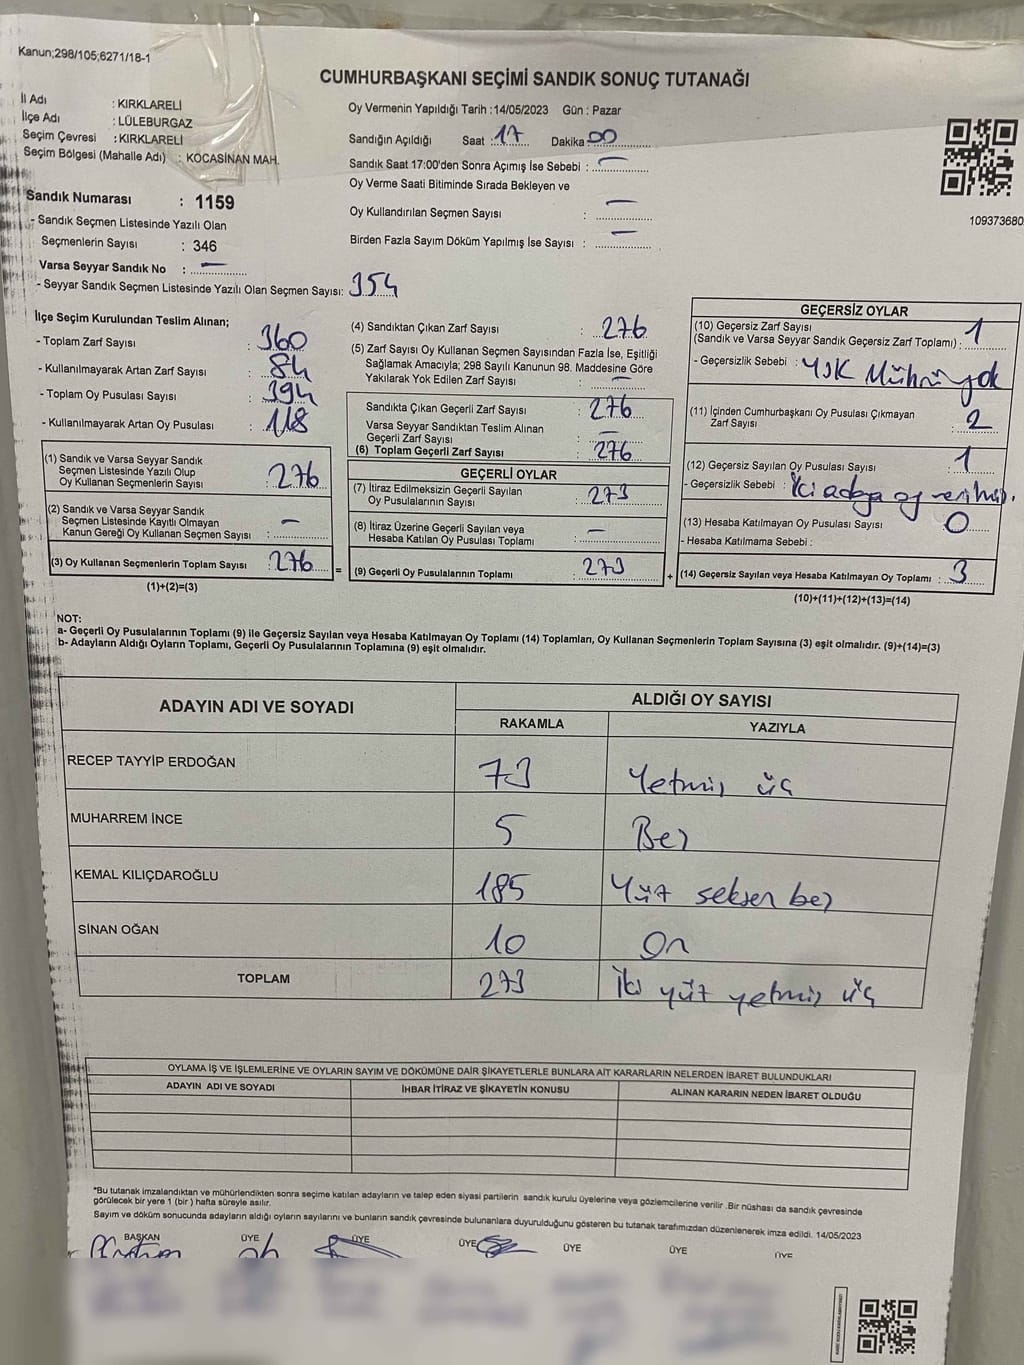 Kanun;298/105;6271/18-1
CUMHURBAŞKANI SEÇİMİ SANDIK SONUÇ TUTANAĞI
İl Adı : KIRKLARELİ
İlçe Adı : LÜLEBURGAZ
Seçim Çevresi : KIRKLARELİ
Seçim Bölgesi (Mahalle Adı) : KOCASİNAN MAH.
Sandık Numarası : 1159
- Sandık Seçmen Listesinde Yazılı Olan
Seçmenlerin Sayısı : 346
Varsa Seyyar Sandık No : —
- Seyyar Sandık Seçmen Listesinde Yazılı Olan Seçmen Sayısı: 354
Oy Vermenin Yapıldığı Tarih :14/05/2023 Gün : Pazar
Sandığın Açıldığı Saat : 17 Dakika : 00
Sandık Saat 17:00'den Sonra Açımış İse Sebebi : —
Oy Verme Saati Bitiminde Sırada Bekleyen ve
Oy Kullandırılan Seçmen Sayısı : —
Birden Fazla Sayım Döküm Yapılmış İse Sayısı : —
109373680
İlçe Seçim Kurulundan Teslim Alınan;
- Toplam Zarf Sayısı : 360
- Kullanılmayarak Artan Zarf Sayısı : 84
- Toplam Oy Pusulası Sayısı : 394
- Kullanılmayarak Artan Oy Pusulası : 118
(1) Sandık ve Varsa Seyyar Sandık
Seçmen Listesinde Yazılı Olup
Oy Kullanan Seçmenlerin Sayısı : 276
(2) Sandık ve Varsa Seyyar Sandık
Seçmen Listesinde Kayıtlı Olmayan
Kanun Gereği Oy Kullanan Seçmen Sayısı : —
(3) Oy Kullanan Seçmenlerin Toplam Sayısı : 276 =
(1)+(2)=(3)
(4) Sandıktan Çıkan Zarf Sayısı : 276
(5) Zarf Sayısı Oy Kullanan Seçmen Sayısından Fazla İse, Eşitliği
Sağlamak Amacıyla; 298 Sayılı Kanunun 98. Maddesine Göre
Yakılarak Yok Edilen Zarf Sayısı : —
Sandıkta Çıkan Geçerli Zarf Sayısı : 276
Varsa Seyyar Sandıktan Teslim Alınan
Geçerli Zarf Sayısı : —
(6) Toplam Geçerli Zarf Sayısı : 276
GEÇERLİ OYLAR
(7) İtiraz Edilmeksizin Geçerli Sayılan
Oy Pusulalarının Sayısı : 273
(8) İtiraz Üzerine Geçerli Sayılan veya
Hesaba Katılan Oy Pusulaları Toplamı : —
(9) Geçerli Oy Pusulalarının Toplamı : 273 +
GEÇERSİZ OYLAR
(10) Geçersiz Zarf Sayısı
(Sandık ve Varsa Seyyar Sandık Geçersiz Zarf Toplamı) : 1
- Geçersizlik Sebebi : YSK Mührü yok
(11) İçinden Cumhurbaşkanı Oy Pusulası Çıkmayan
Zarf Sayısı : 2
(12) Geçersiz Sayılan Oy Pusulası Sayısı : 1
- Geçersizlik Sebebi : İki adaya oy verilmiş.
(13) Hesaba Katılmayan Oy Pusulası Sayısı : 0
- Hesaba Katılmama Sebebi :
(14) Geçersiz Sayılan veya Hesaba Katılmayan Oy Toplamı : 3
(10)+(11)+(12)+(13)=(14)
NOT:
a- Geçerli Oy Pusulalarının Toplamı (9) ile Geçersiz Sayılan veya Hesaba Katılmayan Oy Toplamı (14) Toplamları, Oy Kullanan Seçmenlerin Toplam Sayısına (3) eşit olmalıdır. (9)+(14)=(3)
b- Adayların Aldığı Oyların Toplamı, Geçerli Oy Pusulalarının Toplamına (9) eşit olmalıdır.
ADAYIN ADI VE SOYADI ALDIĞI OY SAYISI
RAKAMLA YAZIYLA
RECEP TAYYİP ERDOĞAN 73 Yetmiş üç
MUHARREM İNCE 5 Beş
KEMAL KILIÇDAROĞLU 185 Yüz seksen beş
SİNAN OĞAN 10 On
TOPLAM 273 İki yüz yetmiş üç
OYLAMA İŞ VE İŞLEMLERİNE VE OYLARIN SAYIM VE DÖKÜMÜNE DAİR ŞİKAYETLERLE BUNLARA AİT KARARLARIN NELERDEN İBARET BULUNDUKLARI
ADAYIN ADI VE SOYADI İHBAR İTİRAZ VE ŞİKAYETİN KONUSU ALINAN KARARIN NEDEN İBARET OLDUĞU
*Bu tutanak imzalandıktan ve mühürlendikten sonra seçime katılan adayların ve talep eden siyasi partilerin sandık kurulu üyelerine veya gözlemcilerine verilir .Bir nüshası da sandık çevresinde
görülecek bir yere 1 (bir ) hafta süreyle asılır.
Sayım ve döküm sonucunda adayların aldığı oyların sayılarını ve bunların sandık çevresinde bulunanlara duyurulduğunu gösteren bu tutanak tarafımızdan düzenlenerek imza edildi. 14/05/2023
BAŞKAN ÜYE ÜYE ÜYE ÜYE ÜYE ÜYE